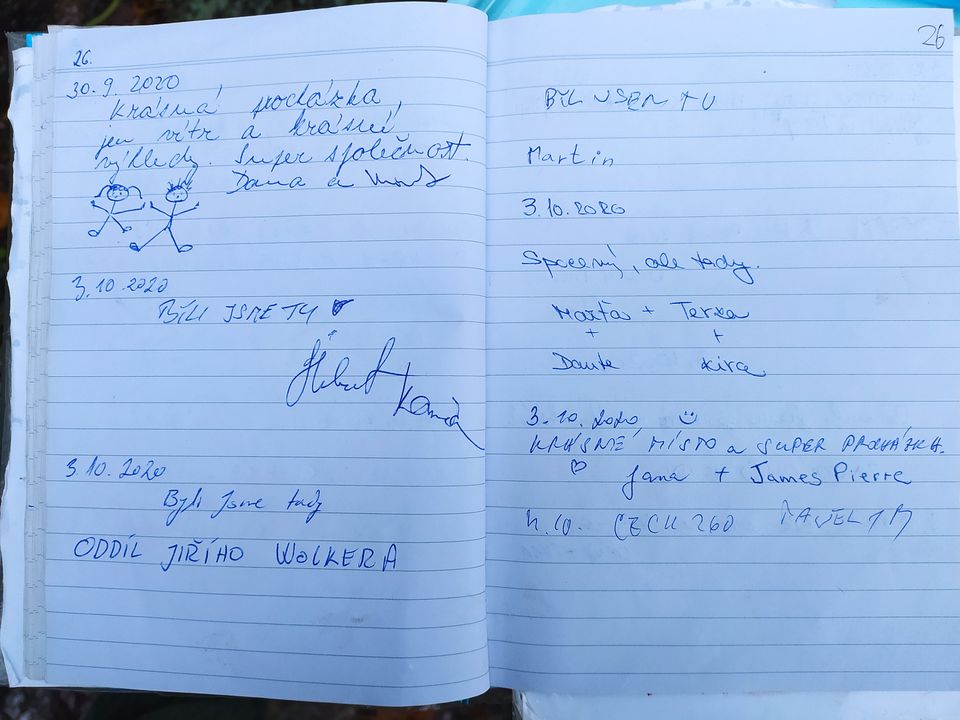 26.
30.9. 2020
Krásná procházka,
jen vítr a krásné
výhledy. Super společnost.
Dana a
3.10.2020
BÍLI JSME TU
3.10.2020
Byli jsme tady
ODDÍL JIŘÍHO WOLKERA
26
BYL JSEM TU
Martin
3.10.2020
Spocený, ale tady.
Maxta + Terka
+ +
Dante Kira
3.10.2020
KRÁSNÉ MÍSTO a SUPER PROCHÁZKA.
Jana + James Pierre
4.10. CZECH 260 PAVEL